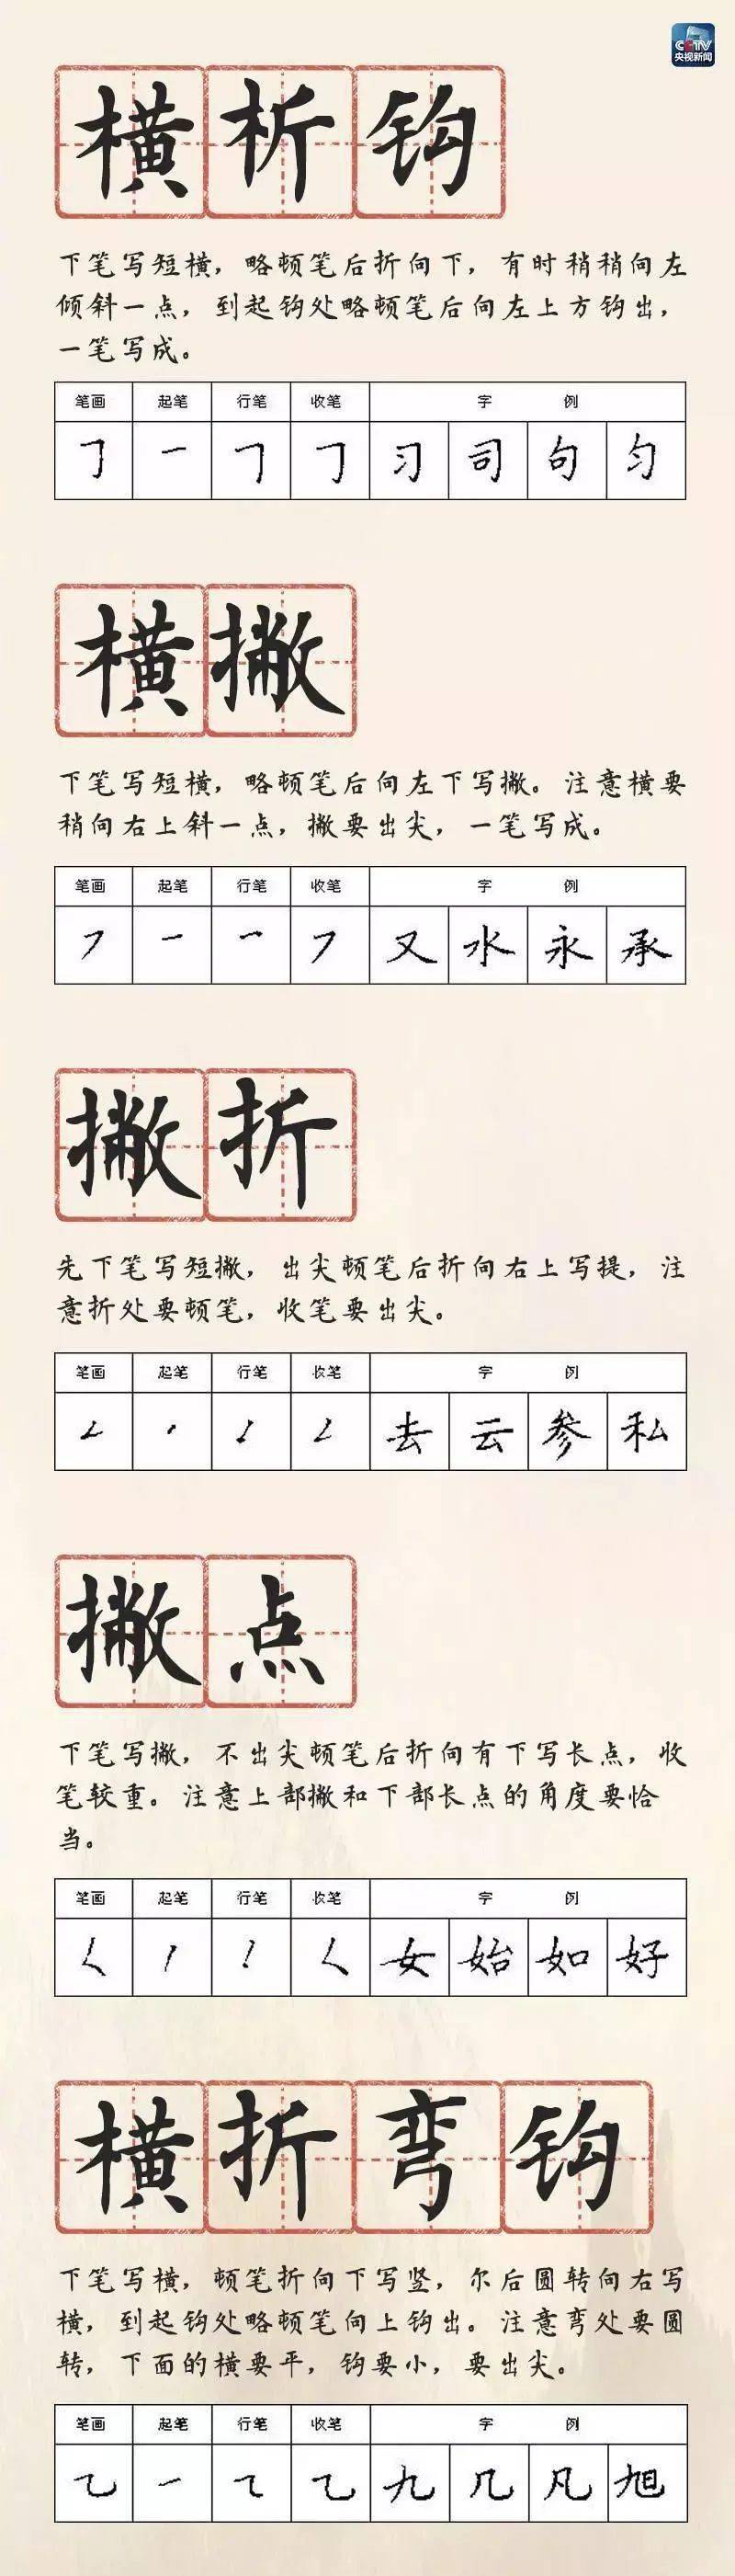 CCTV
央视新闻
横析钩
下笔写短横，略顿笔后折向下，有时稍稍向左
倾斜一点，到起钩处略顿笔后向左上方钩出，
一笔写成。
笔画 起笔 行笔 收笔 字 例
𠃌 一 𠃌 𠃌 习 司 句 匀
横撇
下笔写短横，略顿笔后向左下写撇。注意横要
稍向右上斜一点，撇要出尖，一笔写成。
笔画 起笔 行笔 收笔 字 例
㇇ 一 ㇖ ㇇ 又 水 永 承
撇折
先下笔写短撇，出尖顿笔后折向右上写提，注
意折处要顿笔，收笔要出尖。
笔画 起笔 行笔 收笔 字 例
去 云 参 私
撇点
下笔写撇，不出尖顿笔后折向有下写长点，收
笔较重。注意上部撇和下部长点的角度要恰
当。
笔画 起笔 行笔 收笔 字 例
女 始 如 好
横折弯钩
下笔写横，顿笔折向下写竖，尔后圆转向右写
横，到起钩处略顿笔向上钩出。注意弯处要圆
转，下面的横要平，钩要小，要出尖。
笔画 起笔 行笔 收笔 字 例
九 几 凡 旭